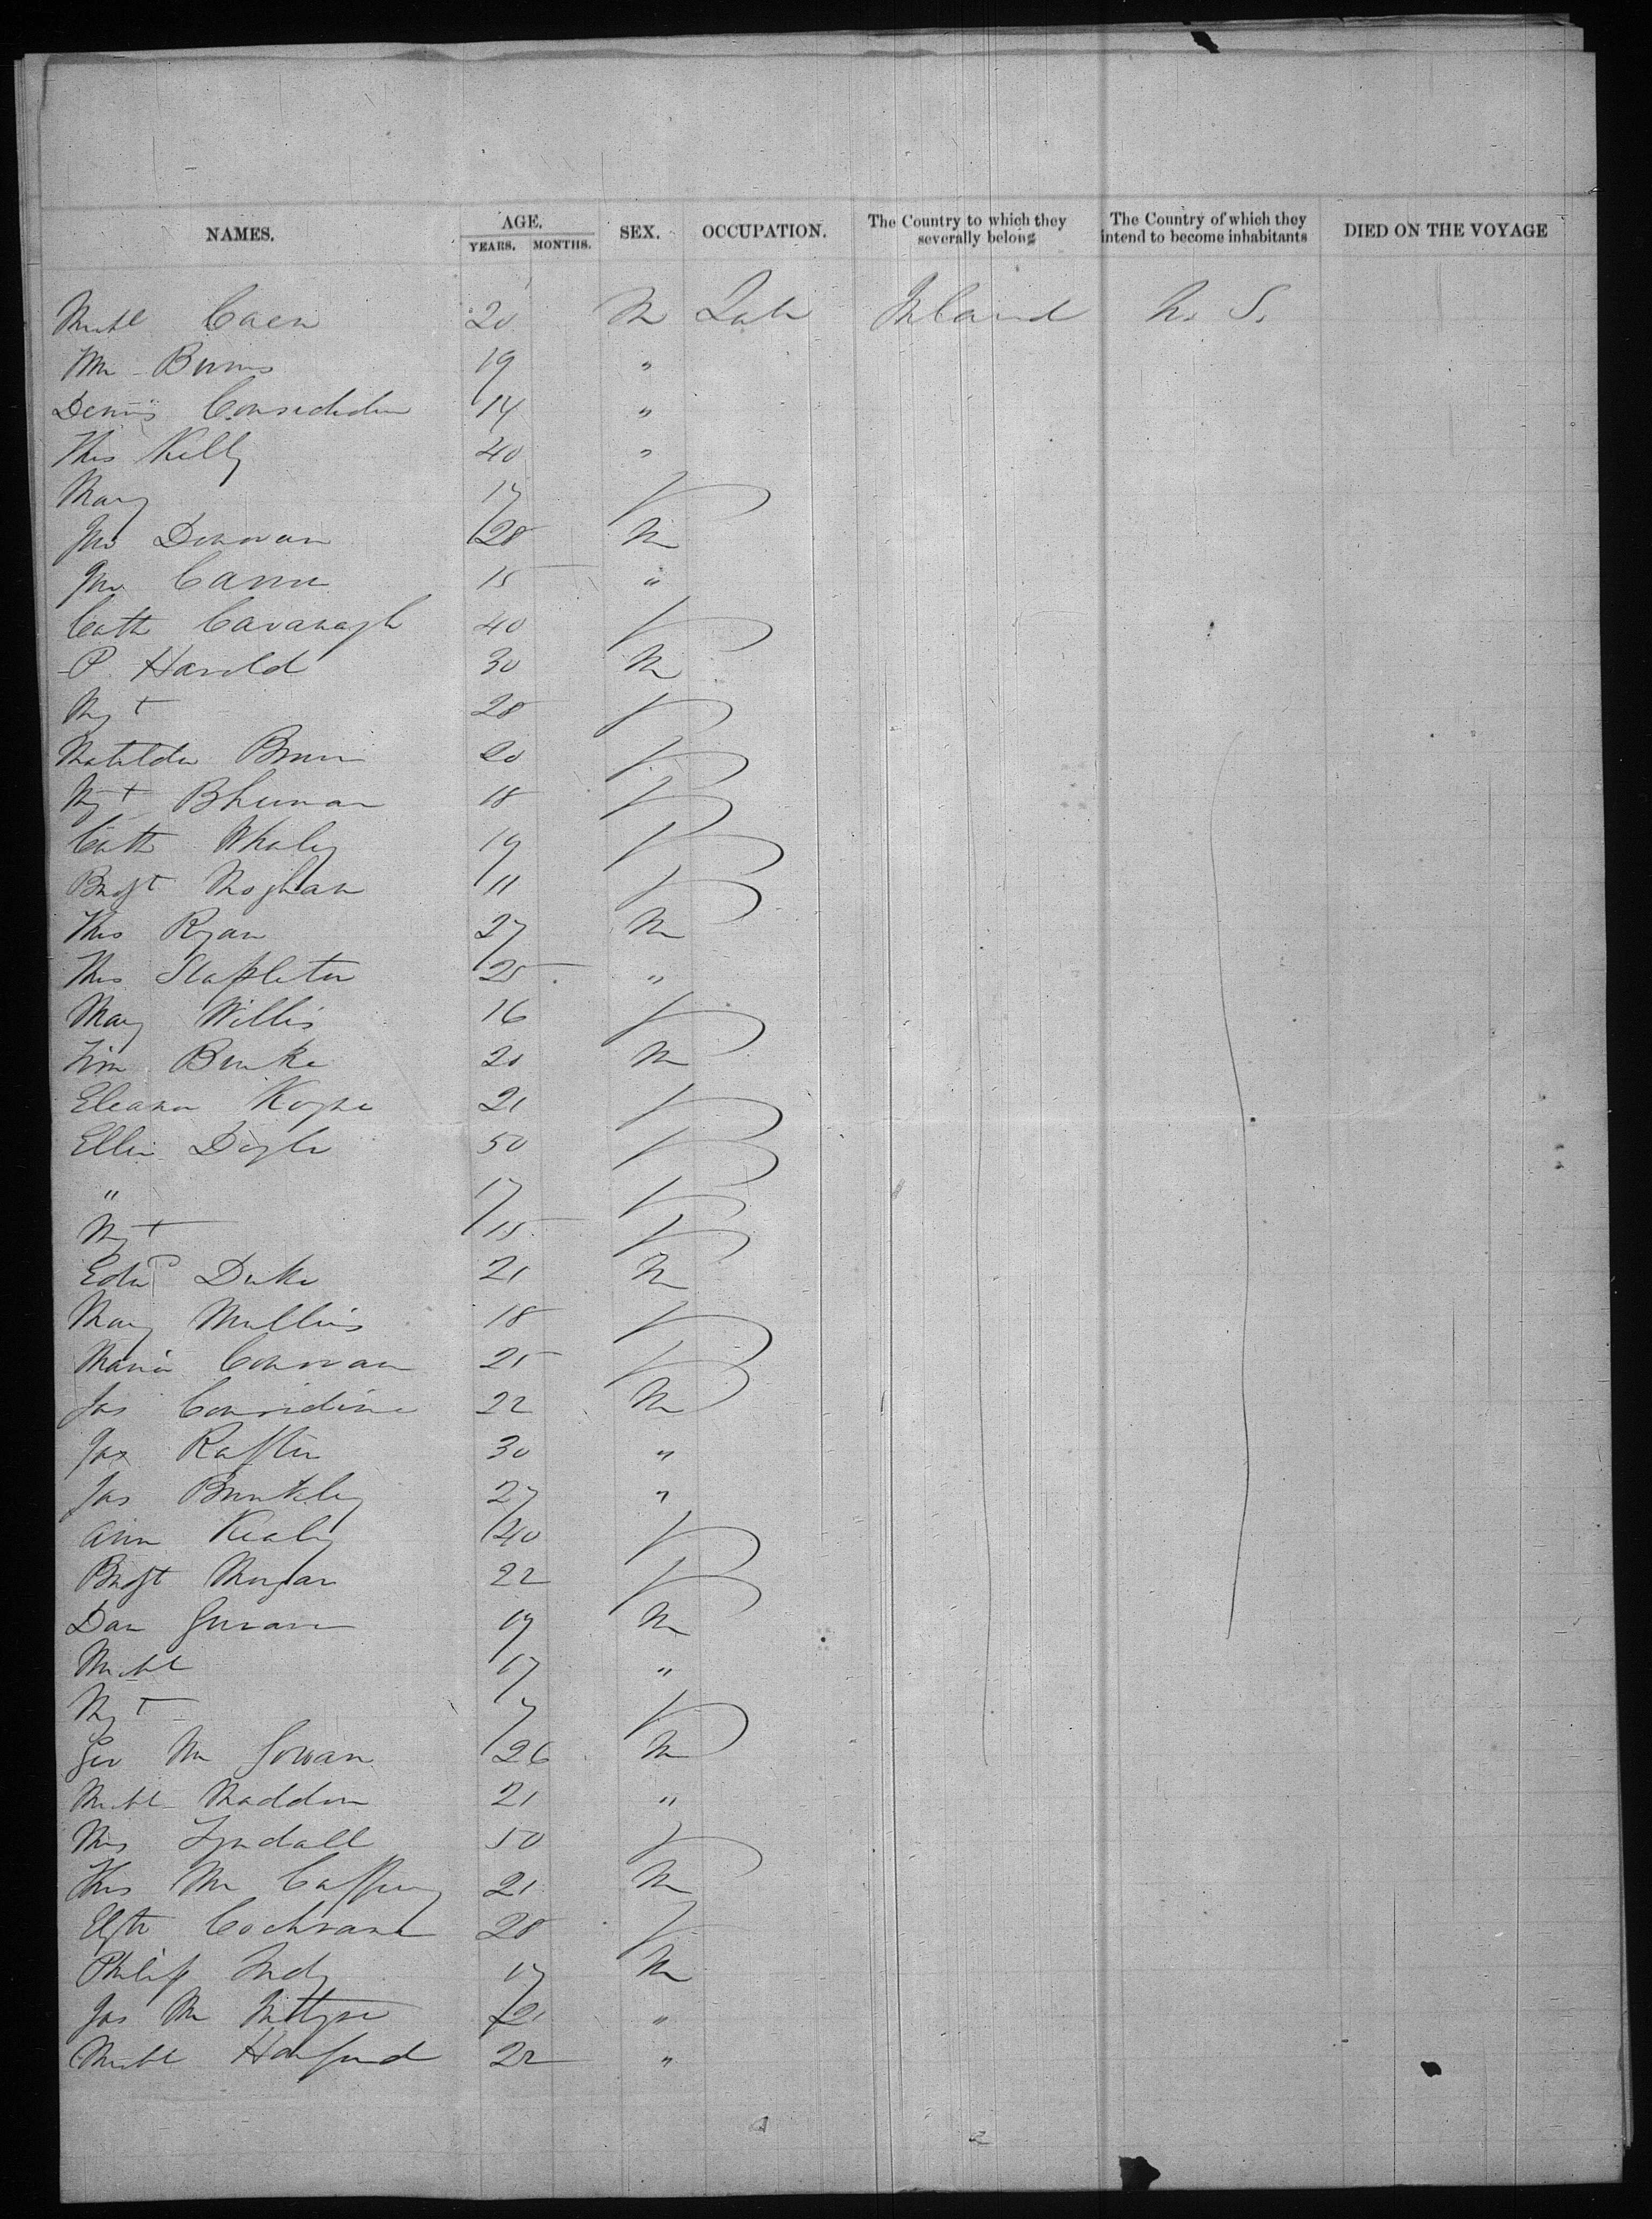 NAMES. AGE. YEARS. MONTHS. SEX. OCCUPATION. The Country to which they severally belong The Country of which they intend to become inhabitants DIED ON THE VOYAGE
Michl Caen 20 M Lab Ireland U. S.
Wm Burns 19 "
Dennis Considine 14 "
Thos Kelly 40 "
Mary 17 F
Jno Donovan 28 M
Jno 15 "
Cath Cavanagh 40 F
P. Harold 30 M
Mgt 28 F
Matilda 20 F
Mgt 18 F
Cath Whaley 19 F
Bridgt Moghan 11 F
Thos Ryan 27 M
Thos Stapleton 25 "
Mary Willis 16 F
Wm Burke 20 M
Eleanor 21 F
Ellen Doyle 50 F
" 17 F
Mgt 15 F
Edwd Duke 21 M
Mary Mullins 18 F
Maria 25 F
Jas Considine 22 M
Jas Rafter 30 "
Jas 27 "
Ann Kealy 40 F
Bridgt 22 F
Dan 19 M
Michl 17 "
Mgt 7 F
Geo Mc Gowan 26 M
Michl Madden 21 "
Mrs Tyndall 50 F
Thos Mc Caffrey 21 M
Cochrane 28 F
Philip 17 M
Jas Mc 21 "
Michl Hanford 22 "